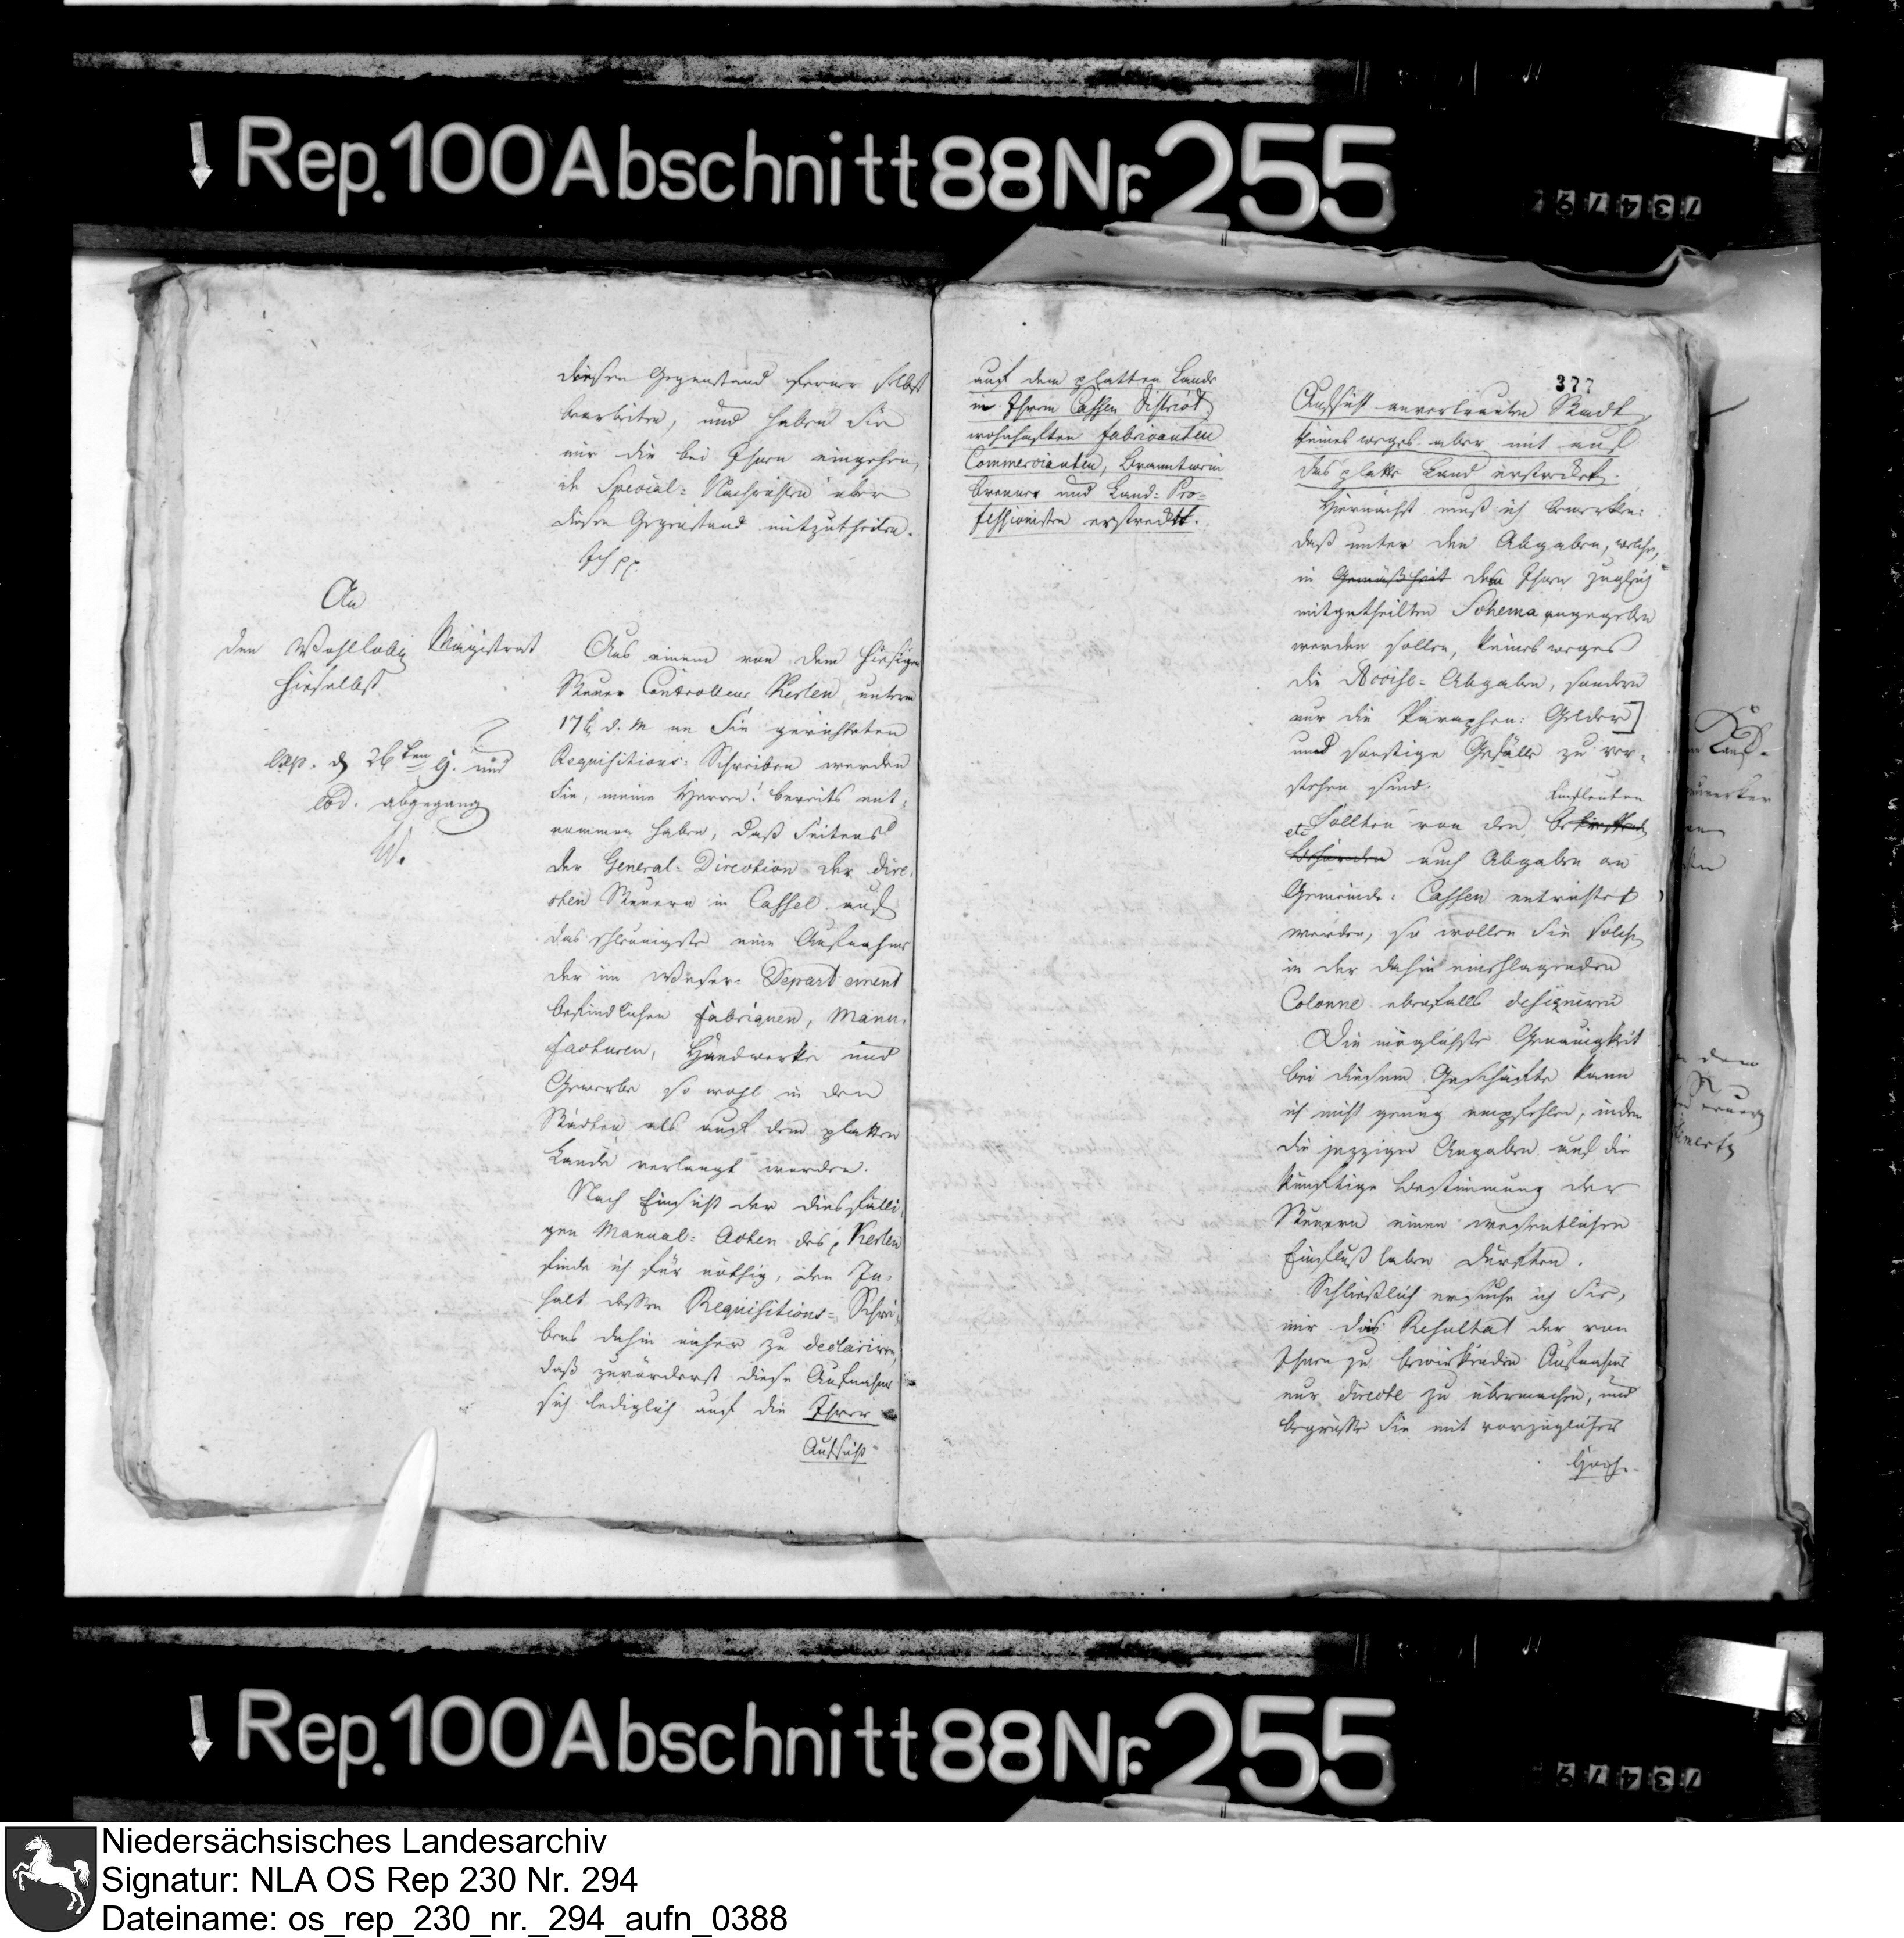 Rep. 100 Abschnitt 88 Nr. 255
73479
diesen Gegenstand ferner selbst
bearbeiten, und haben Sie
mir die bei Ihnen eingehen,
de Special-Nachrichten über
diesen Gegenstand mitzutheilen.
Ich pp.
An
den Wohllobl. Magistrat
hieselbst.
Exp. d 26ten ej. und
eod. abgegang
Aus einem von dem hiesigen
Steuer Controlleur Kerten unterm
17t d. M an Sie gerichteten
Requisitions-Schreiben werden
Sie, meine Herren! bereits ent,
nommen haben, daß Seitens
der General-Direction der dire,
cten Steuern in Cassel auf
das schleunigste eine Aufnahme
der im Weser-Departement
befindlichen Fabriquen, Manu,
facturen, Handwerke und
Gewerbe so wohl in den
Städten als auf dem platten
Lande verlangt werden.
Nach Einsicht der diesfälli,
gen Manual-Acten des p Kerten
finde ich für nöthig, den In,
halt dessen Requisitions-Schrei,
bens dahin näher zu declariren,
daß zuvörderst diese Aufnahme
sich lediglich auf die Ihrer
Aufsicht
auf dem platten Lande
in Ihrem Cassen District
wohnhaften Fabricanten
Commercianten, Branntwein
brenner und Land-Pro-
fessionisten erstreckt.
377
Aufsicht anvertrauten Stadt,
keines weges aber mit auf
das platte Land erstrecket.
Hiernächst muß ich bemerken:
daß unter den Abgaben, welche,
in Gemäßheit dem Ihnen zugleich
mitgetheilten Schema angegeben
werden sollen, keines weges
die Accise-Abgaben, sondern
nur die Paraphen-Gelder]
und sonstige Gefälle zu ver-
stehen sind.
Kaufleuten
Sollten von den
etc Behörden auch Abgaben an
Gemeinde-Cassen entrichtet
werden, so wollen Sie solche
in der dahin einschlagenden
Colonne ebenfalls designiren
Die möglichste Genauigkeit
bei diesem Geschäfte kann
ich nicht genug empfehlen, indem
die jezzigen Angaben auf die
künftige Bestimmung der
Steuern einen wesentlichen
Einfluß haben dürften.
Schließlich ersuche ich Sie,
mir das Resultat der von
Ihnen zu bewirkenden Aufnahme
nur directe zu übermachen, und
begrüße Sie mit vorzüglicher
Hoch-
Rep. 100 Abschnitt 88 Nr. 255
73479
Niedersächsisches Landesarchiv
Signatur: NLA OS Rep 230 Nr. 294
Dateiname: os_rep_230_nr._294_aufn_0388